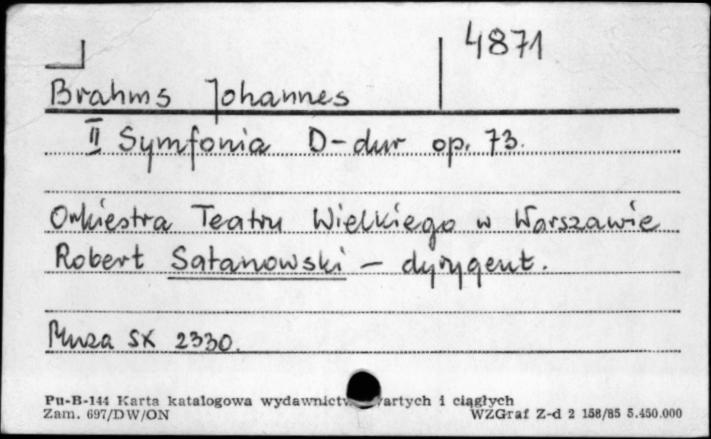 4871
Brahms Johannes
II Symfonia D-dur op. 73.
Orkiestra Teatru Wielkiego w Warszawie
Robert Satanowski – dyrygent.
Muza SX 2330.
Pu-B-144 Karta katalogowa wydawnictw zwartych i ciągłych
Zam. 697/DW/ON WZGraf Z-d 2 158/85 5.450.000